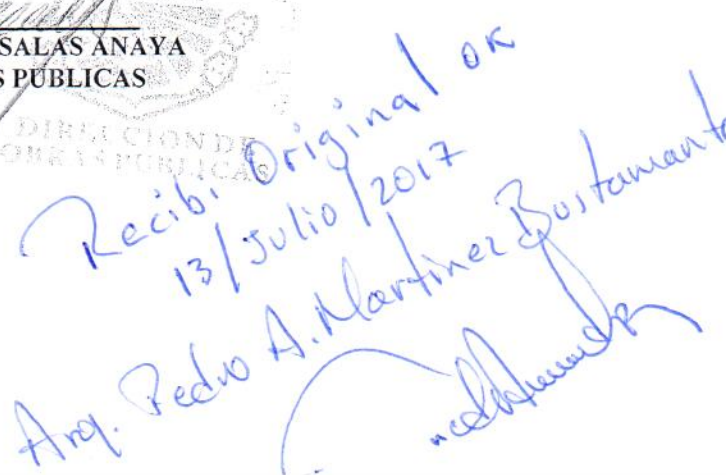 SALAS ANAYA
S PUBLICAS
DIRECCION DE
OBRAS PUBLICAS
Recibi Original OK
13/Julio/2017
Arq. Pedro A. Martinez Bustamante